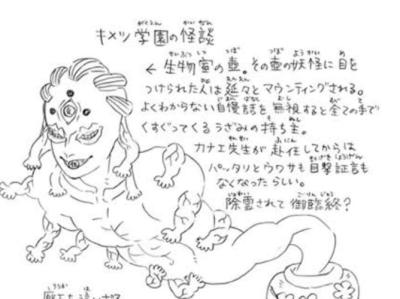 キメツ学園の怪談
← 生物室の壺。その壺の妖怪に目を
つけられた人は延々とマウンティングされる。
よくわからない自慢話を無視すると全ての手で
くすぐってくるうざみの持ち主。
カナエ先生が赴任してからは
パッタリとウワサも目撃証言も
なくなったらしい。
除霊されて御臨終?